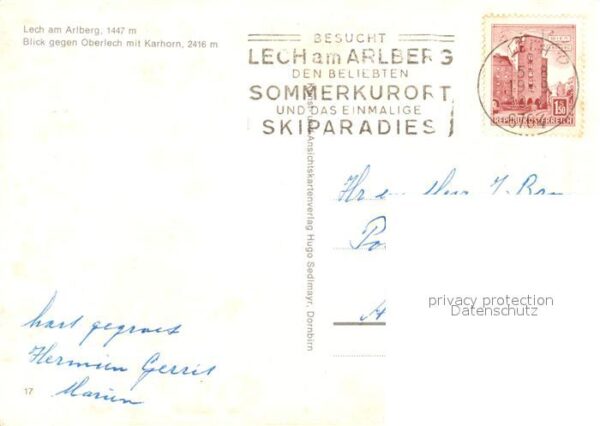 Lech am Arlberg, 1447 m
Blick gegen Oberlech mit Karhorn, 2416 m
BESUCHT
LECH am ARLBERG
DEN BELIEBTEN
SOMMERKURORT
UND DAS EINMALIGE
SKIPARADIES
REPUBLIK ÖSTERREICH
Ansichtskartenverlag Hugo Sedlmayr, Dornbirn
privacy protection
Datenschutz
hart gegroet
Hermien Gerrit
Marien
17